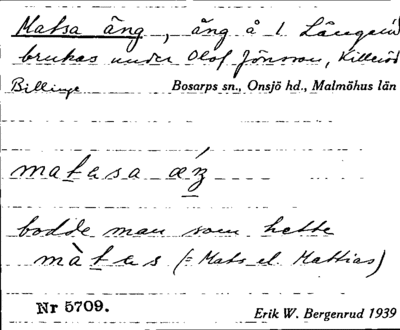 Matsa äng, äng å 1 Långeröd
brukas under Olof Jönsson, Killeröd
Billinge Bosarps sn., Onsjö hd., Malmöhus län
matasa æŋ
bodde man som hette
màtas (= Mats el. Mattias)
Nr 5709.
Erik W. Bergenrud 1939